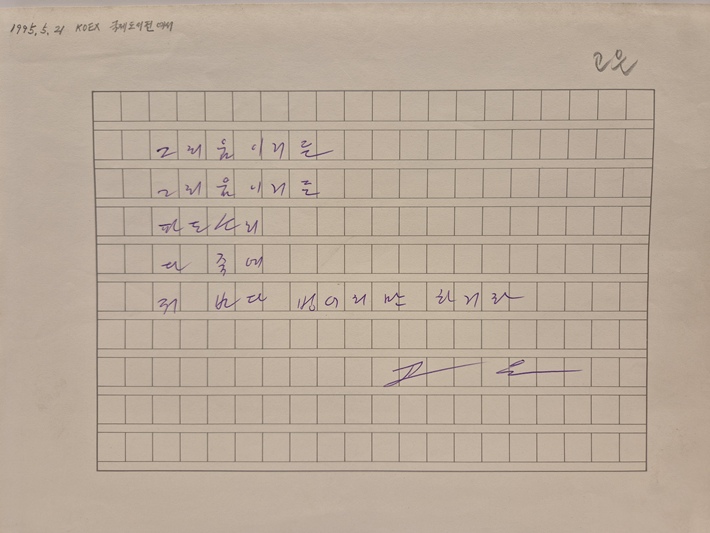 1995. 5. 21 KOEX 국제도서전에서
고은
그리움이거든
그리움이거든
파도소리
다 죽여
저 바다 벙어리만 하거라